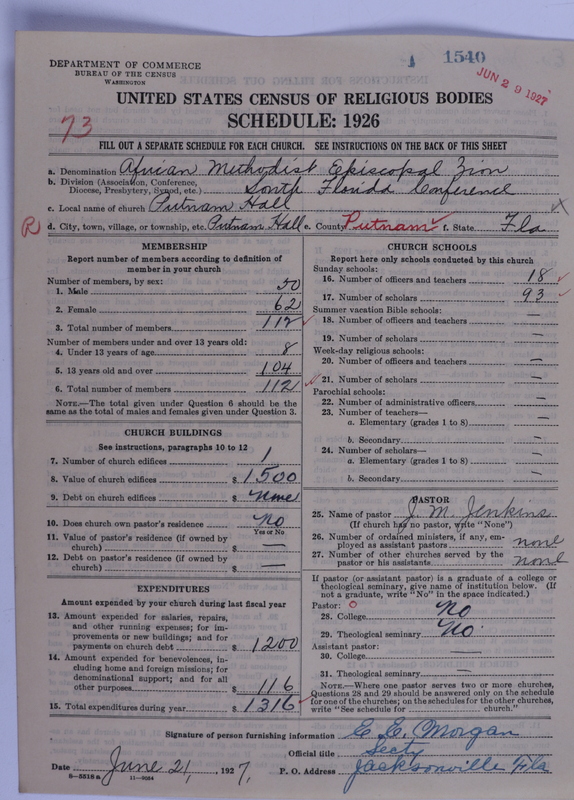 DEPARTMENT OF COMMERCE
BUREAU OF THE CENSUS
WASHINGTON
1540
JUN 29 1927
UNITED STATES CENSUS OF RELIGIOUS BODIES
SCHEDULE: 1926
73
FILL OUT A SEPARATE SCHEDULE FOR EACH CHURCH. SEE INSTRUCTIONS ON THE BACK OF THIS SHEET
a. Denomination African Methodist Episcopal Zion
b. Division (Association, Conference, Diocese, Presbytery, Synod, etc.) South Florida Conference
c. Local name of church Putnam Hall
R d. City, town, village, or township, etc. Putnam Hall e. County Putnam f. State Fla
MEMBERSHIP
Report number of members according to definition of member in your church
Number of members, by sex:
1. Male 50
2. Female 62
3. Total number of members 112
Number of members under and over 13 years old:
4. Under 13 years of age 8
5. 13 years old and over 104
6. Total number of members 112
NOTE.—The total given under Question 6 should be the same as the total of males and females given under Question 3.
CHURCH BUILDINGS
See instructions, paragraphs 10 to 12
7. Number of church edifices 1
8. Value of church edifices $ 1500
9. Debt on church edifices $ none
10. Does church own pastor's residence No
Yes or No
11. Value of pastor's residence (if owned by church) $ —
12. Debt on pastor's residence (if owned by church) $ —
EXPENDITURES
Amount expended by your church during last fiscal year
13. Amount expended for salaries, repairs, and other running expenses; for improvements or new buildings; and for payments on church debt $ 1200
14. Amount expended for benevolences, including home and foreign missions; for denominational support; and for all other purposes $ 116
15. Total expenditures during year $ 1316
CHURCH SCHOOLS
Report here only schools conducted by this church
Sunday schools:
16. Number of officers and teachers 18
17. Number of scholars 93
Summer vacation Bible schools:
18. Number of officers and teachers —
19. Number of scholars —
Week-day religious schools:
20. Number of officers and teachers —
21. Number of scholars —
Parochial schools:
22. Number of administrative officers —
23. Number of teachers—
a. Elementary (grades 1 to 8) —
b. Secondary —
24. Number of scholars—
a. Elementary (grades 1 to 8) —
b. Secondary —
PASTOR
25. Name of pastor J. M. Jenkins
(If church has no pastor, write "None")
26. Number of ordained ministers, if any, employed as assistant pastors none
27. Number of other churches served by the pastor or his assistants none
If pastor (or assistant pastor) is a graduate of a college or theological seminary, give name of institution below. (If not a graduate, write "No" in the space indicated.)
Pastor: O
28. College No
29. Theological seminary No
Assistant pastor:
30. College —
31. Theological seminary —
NOTE.—Where one pastor serves two or more churches, Questions 28 and 29 should be answered only on the schedule for one of the churches; on the schedules for the other churches, write "See schedule for ________ church."
Signature of person furnishing information E. E. Morgan
Official title Secty
Date June 21, 1927, P. O. Address Jacksonville Fla
8—5518a 11—9084